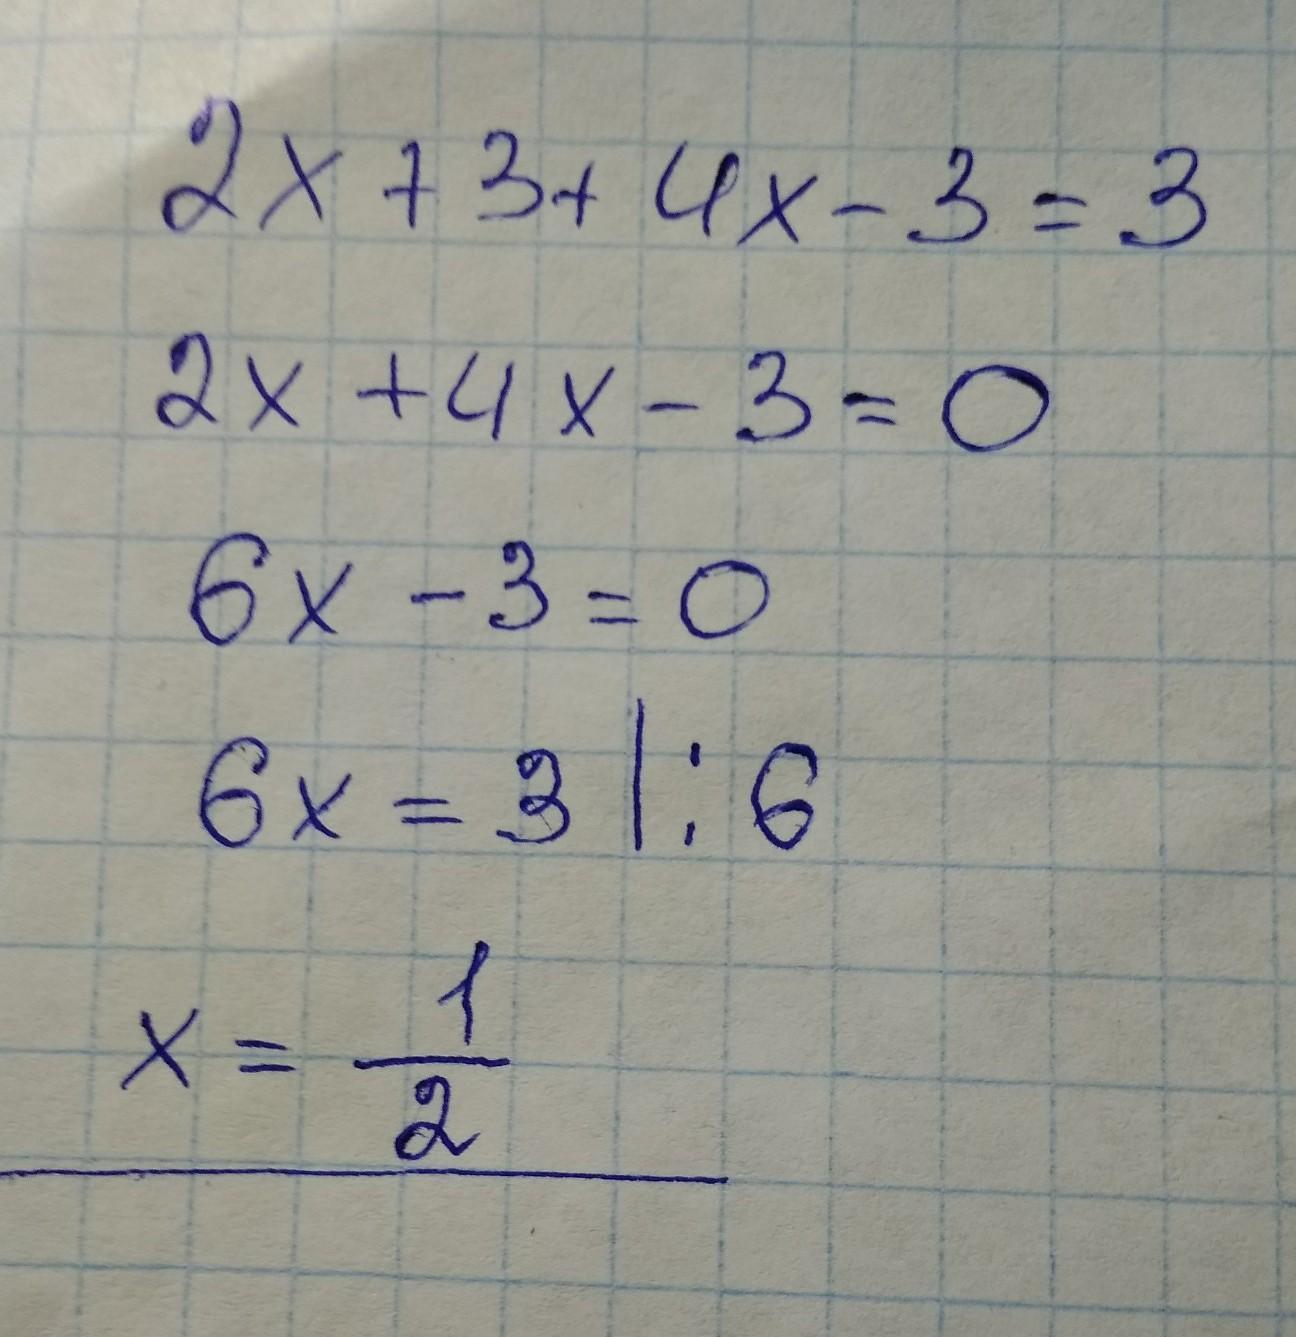 2x + 3 + 4x - 3 = 3
2x + 4x - 3 = 0
6x - 3 = 0
6x = 3 | : 6
x = 1/2